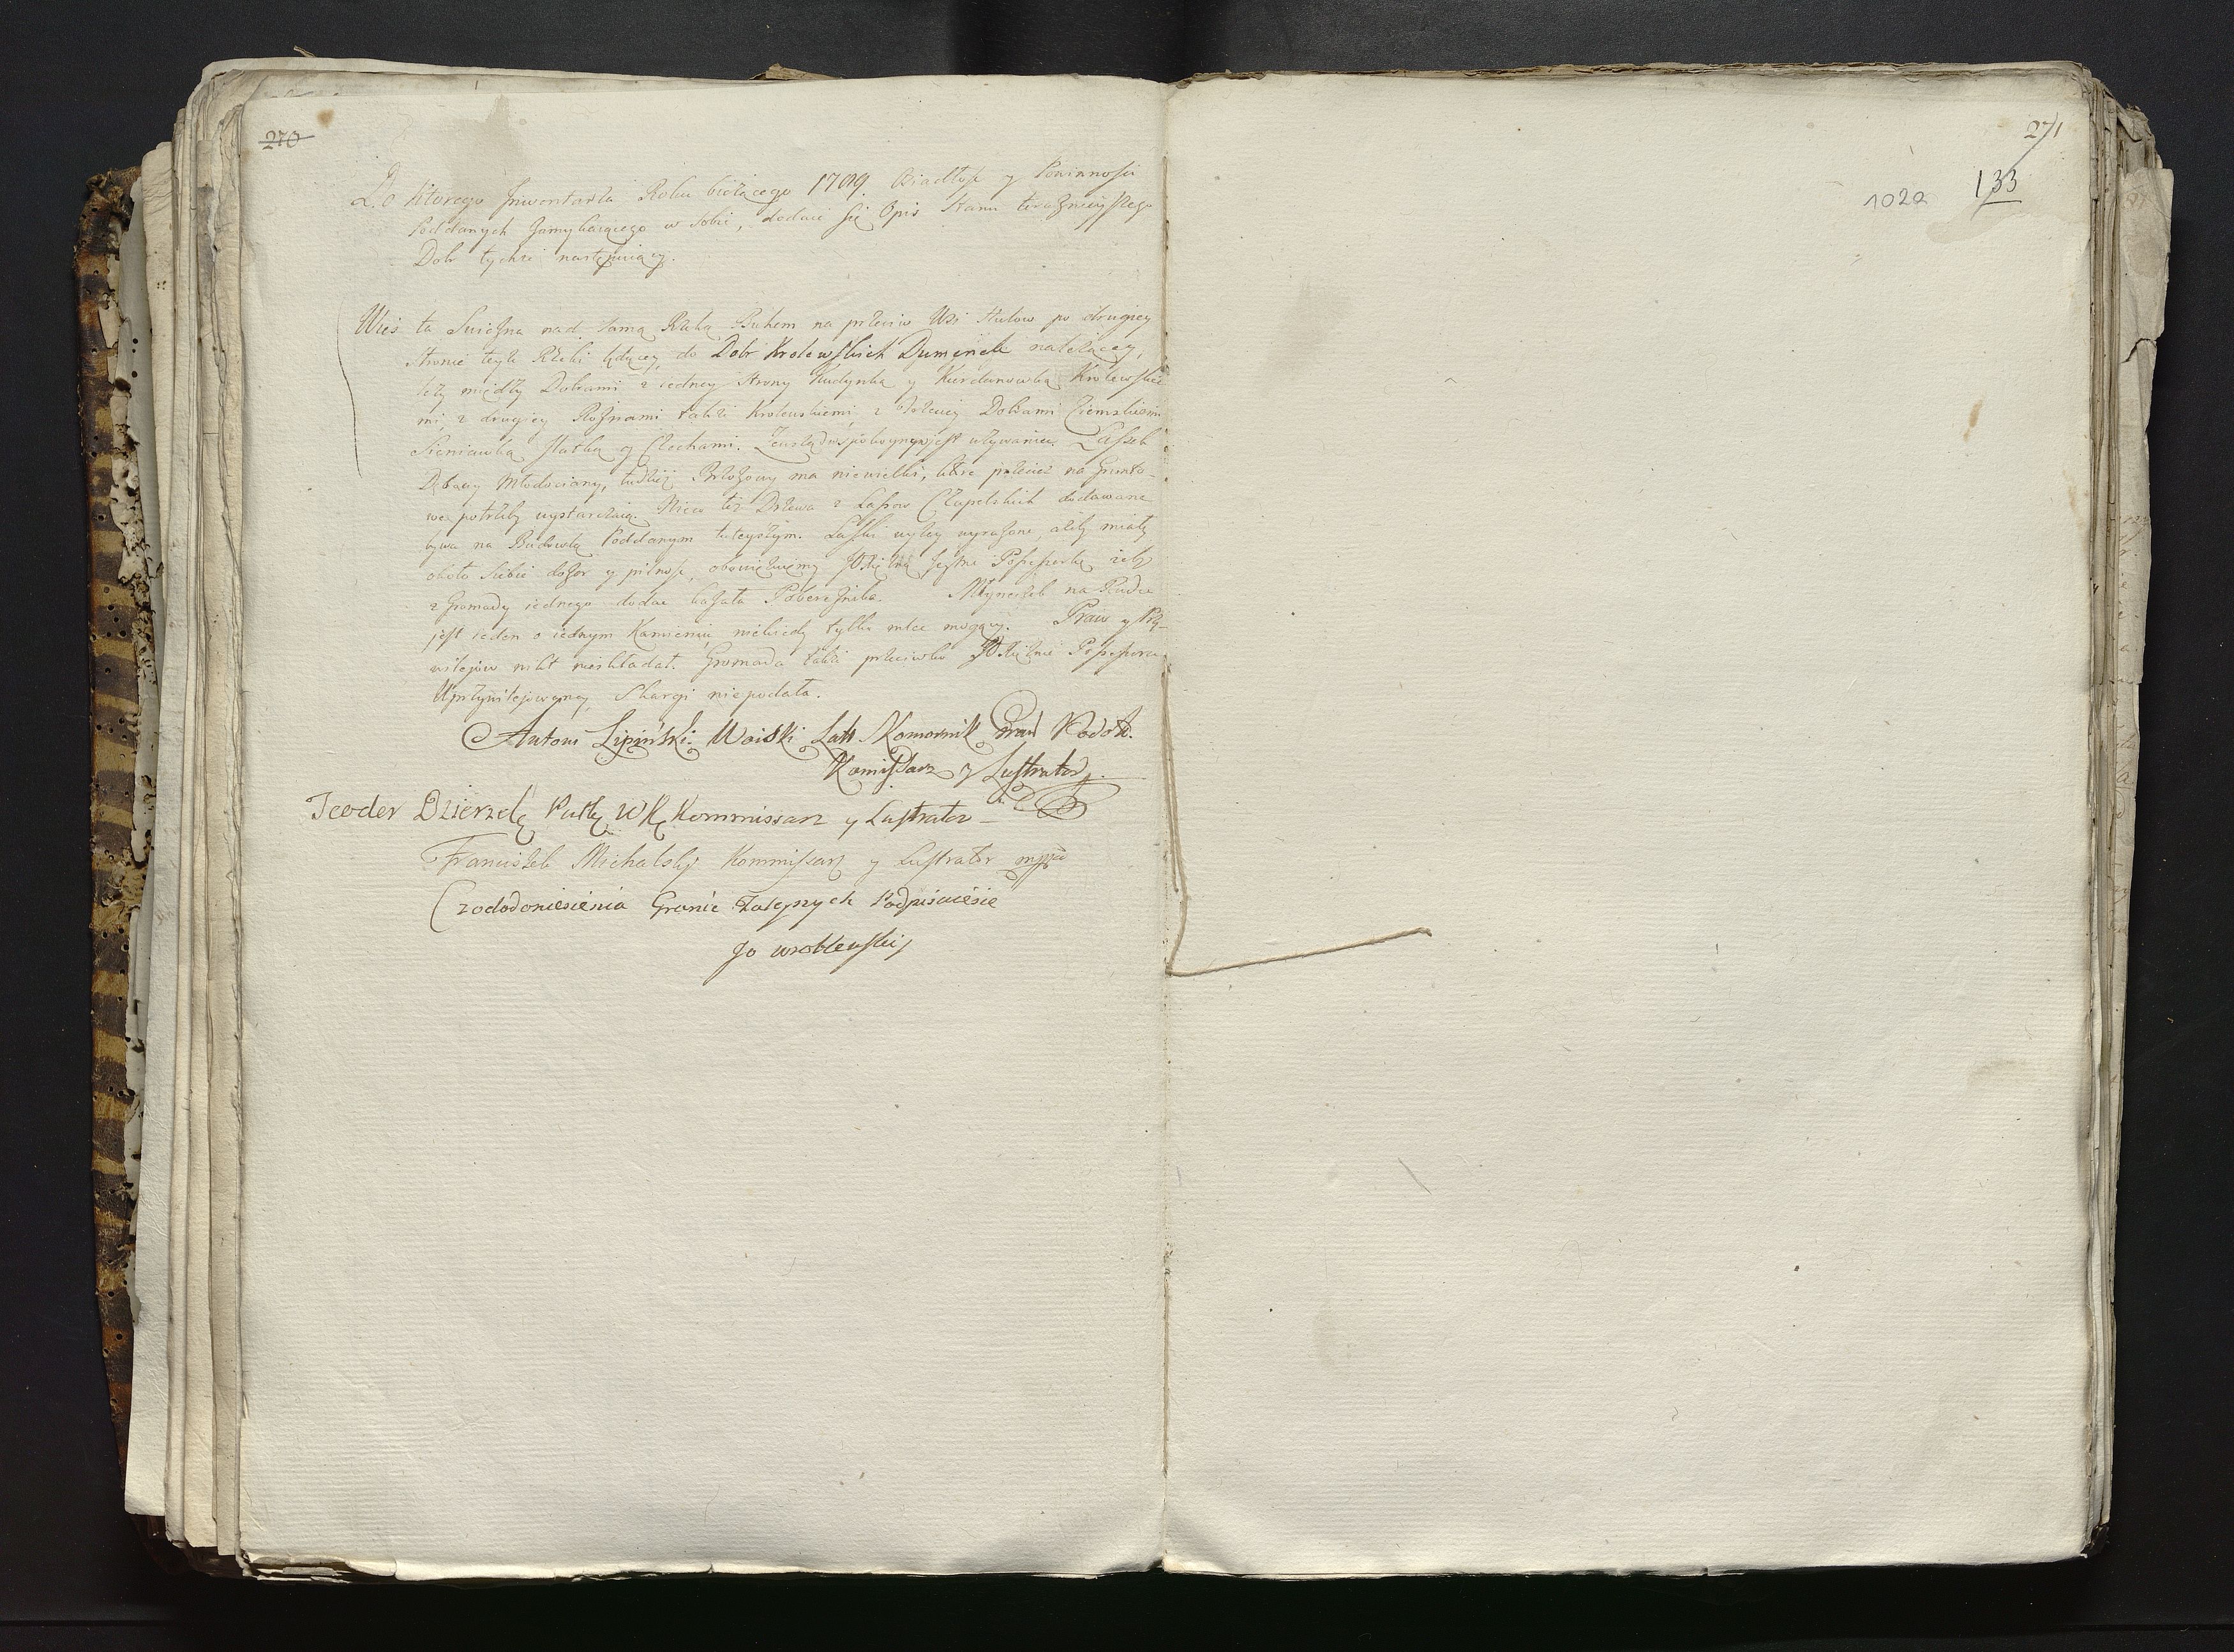 270
Do ktorego Inwentarza Roku bieżącego 1789. Osiadłość y Powinnosci
Poddanych zamykaiącego w sobie, dodaie się Opis Stanu teraznieyszego
Dobr tychże następuiący.
Wieś ta Suiezna nad samą Rzeką Buhem na przeciw Wsi Stulow po drugiey
stronie teyże Rzeki będącey, do Dobr Krolewskich Dumenek należącey,
leży między Dobrami z iedney strony Kudynką y Kurdanowką Krolewskie-
mi, z drugiey Roznami także Krolewskiemi, z trzeciey Dobrami Ziemskiemi
Sieniawką y Czechami. jest używanie. Lasek
Dębowy młodociany, tudzież Brzozowy ma niewielki, ktore przecież na Grunto-
we potrzeby wystarczaią. Nieco też Drzewa z Lasow Czapelskich dodawane
bywa na Budowlę Poddanym tuteyszym. Laski wyżey wyrażone, ażeby miały
około siebie dozor y pilność, obowiązuiemy żeby
z Gromady iednego dodać kazała Pobereznika. Młyneczek na Rudce
jest ieden o iednym Kamieniu niekiedy tylko mleć mogący. Praw y Przy-
wilejow nikt nieskładał. Gromada także przeciwko
Uprzywilejowaney, skargi niepodała.
Antoni Lipiński Woiski Lat. Komornik Gran. Podol.
Komisarz y Lustrator
Teodor Dzierzek Putk WK Kommissarz y Lustrator
Franciszek Michalski Kommissarz y Lustrator mpp
Czododoniesienia Granic Tuteyszych Podpisuiesie
Jo wroblewskij
271
102a
133